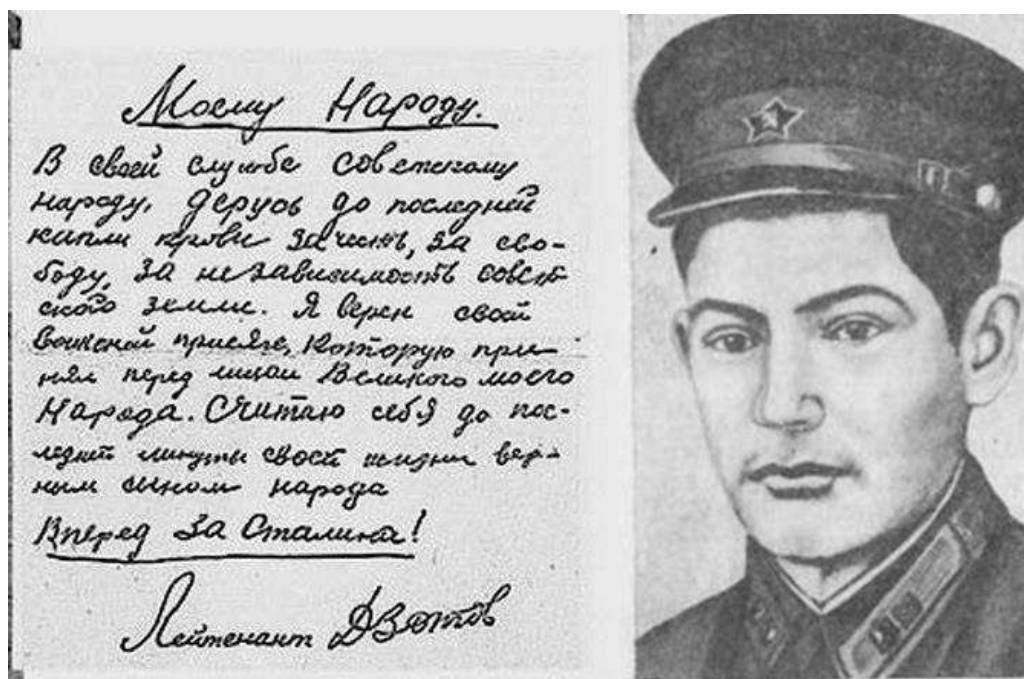 Моему Народу.
В своей службе советскому
народу, дерусь до последней
капли крови за честь, за сво-
боду, за независимость совет
ской земли. Я верен своей
военной присяге, которую при-
нял перед лицом Великого моего
Народа. Считаю себя до пос-
ледней минуты своей жизни вер-
ным сыном народа
Вперед за Сталина!
Лейтенант ДЗотов